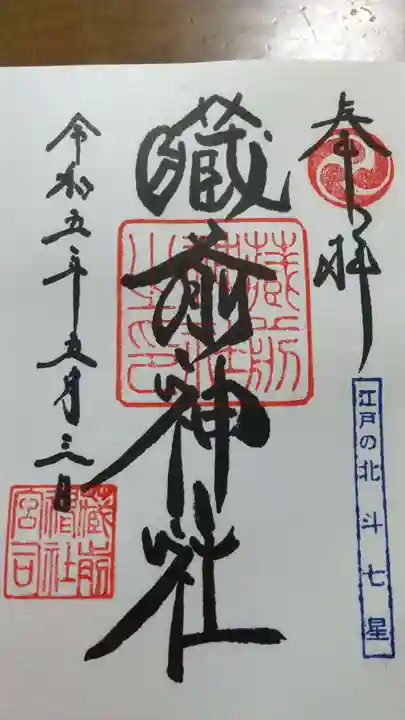 奉拝
江戸の北斗七星
蔵前神社
蔵前神社之印
令和五年五月三日
蔵前神社宮司